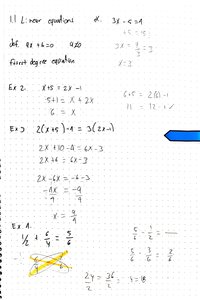 1.1 Linear equations
ex. 3x - 5 = 4
+5 = 5
def. ax + b = 0 a≠0
3x = 9/3 = 3
first degree equation
x = 3
Ex 2. x + 5 = 2x - 1
5 + 1 = x + 2x
6 = x
6 + 5 = 2(6) - 1
11 = 12 - 1 ✓
Ex 3 2(x + 5) - 4 = 3(2x - 1)
2x + 10 - 4 = 6x - 3
2x + 6 = 6x - 3
2x - 6x = -6 - 3
-4x = -9
x = 9/4
Ex 4.
1/2 + 6/4 = 5/6
5/6 - 1/2 =
5/6 - 3/6 = 2/6
24/2 = 36/2 = = 18